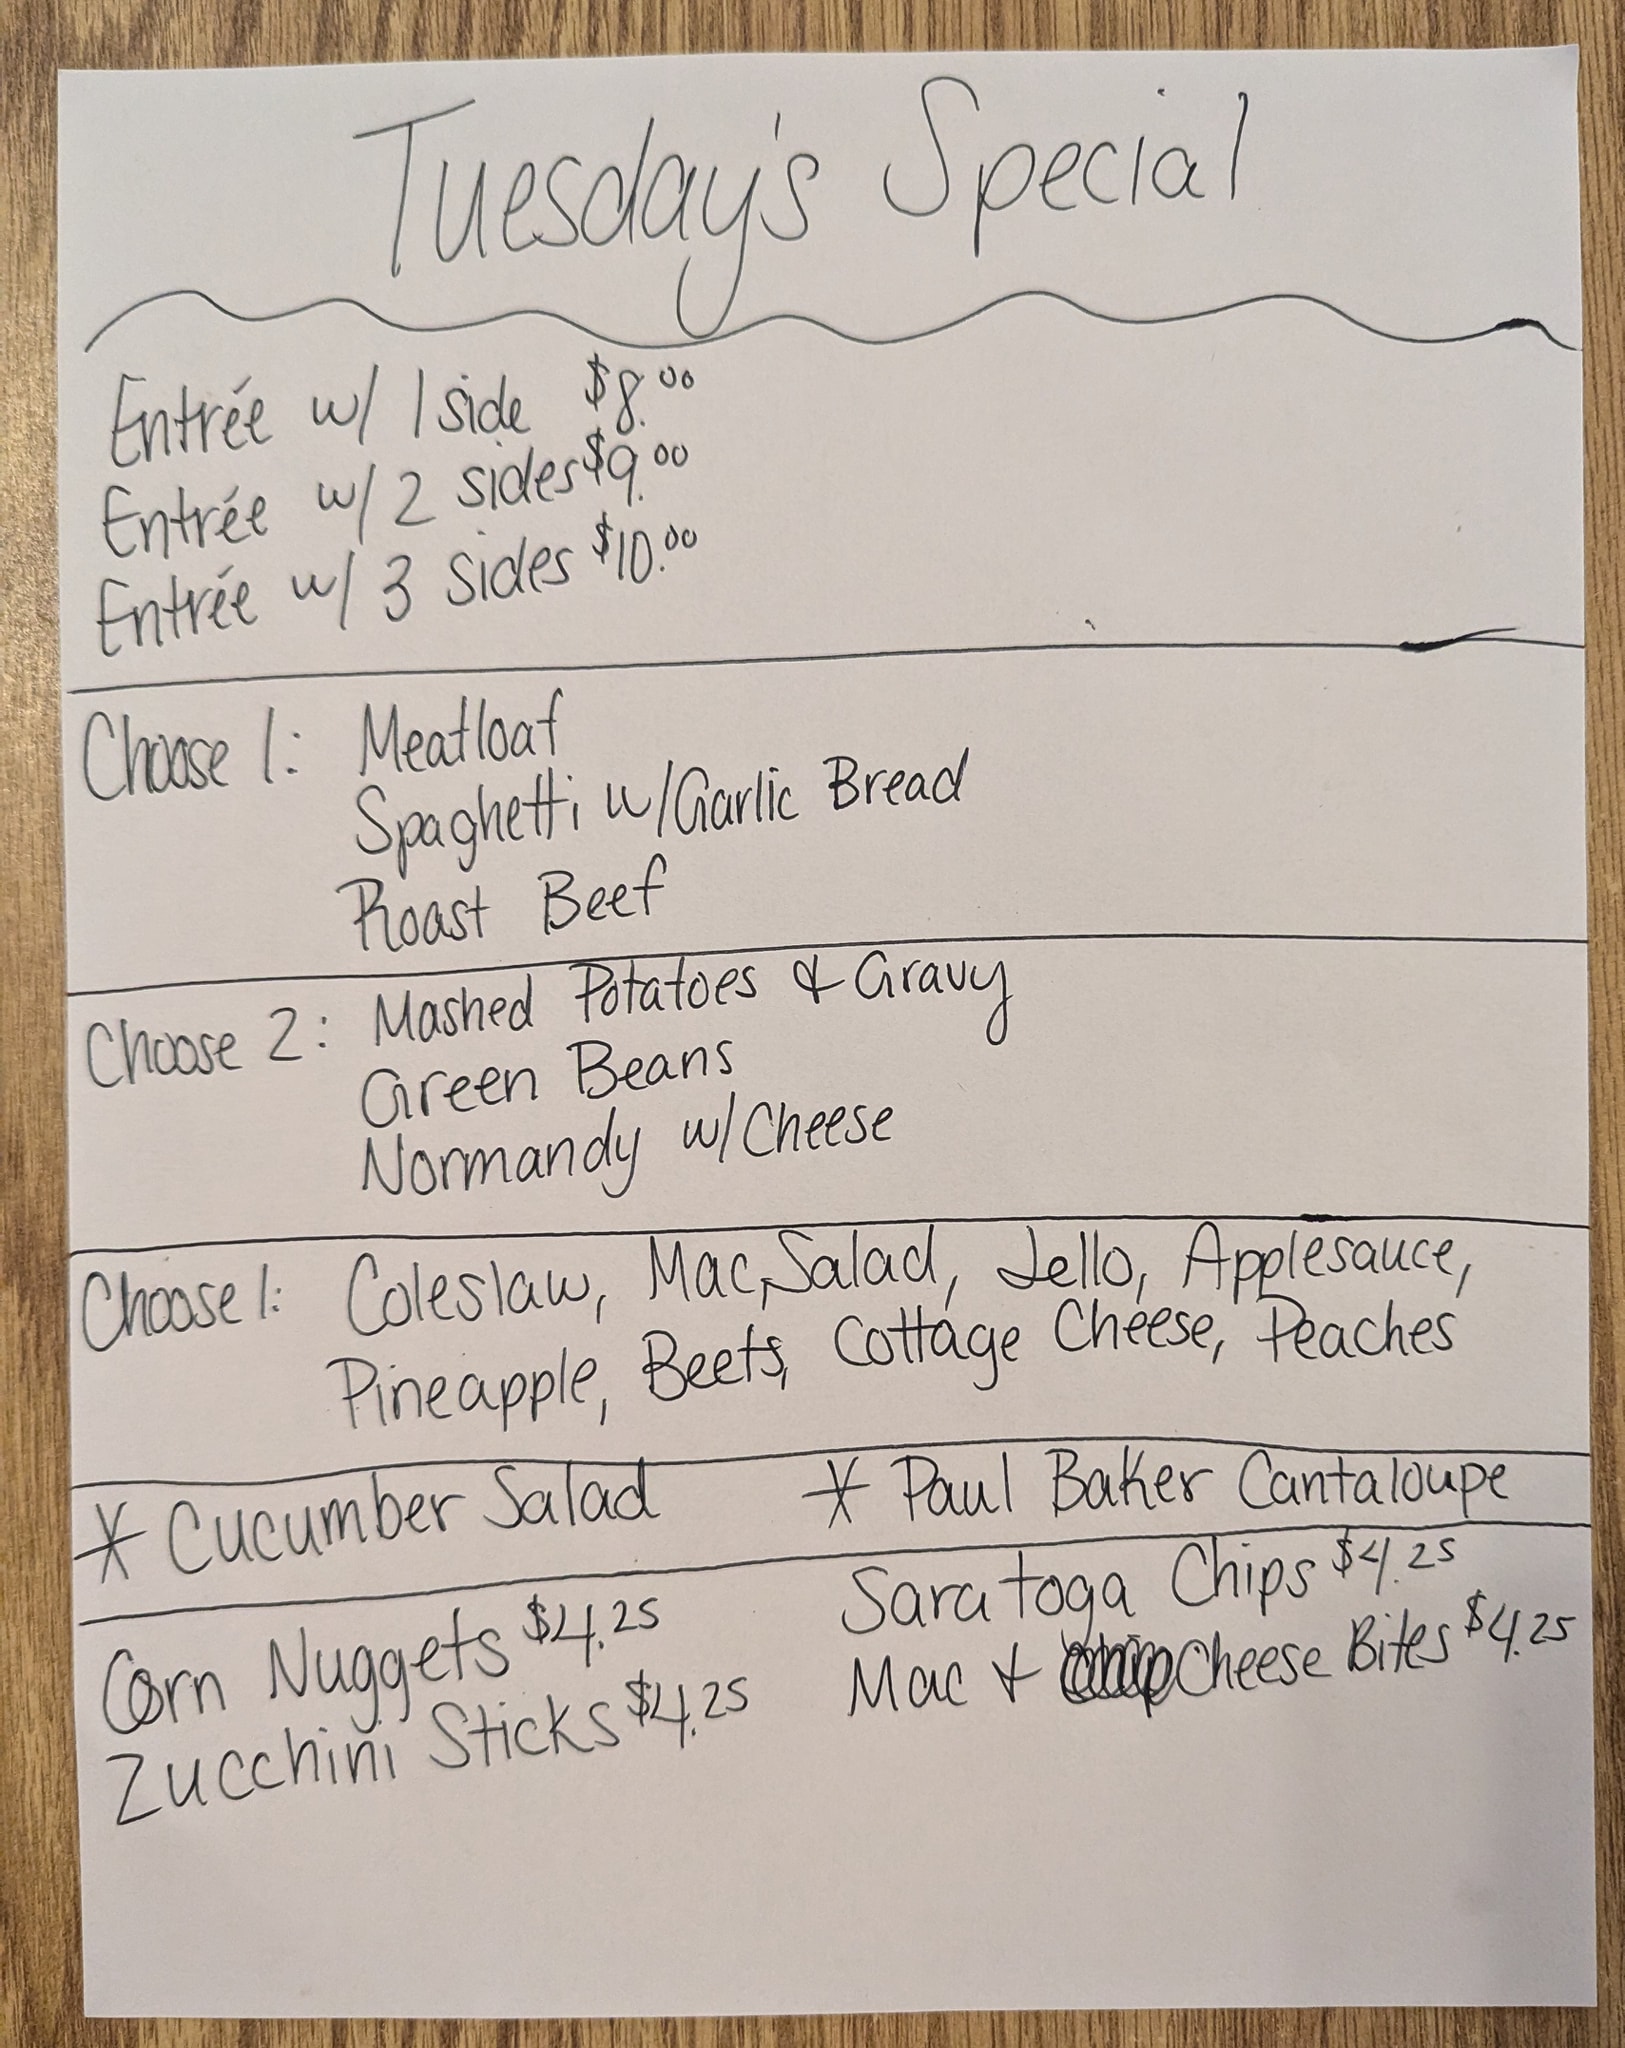 Tuesday's Special
Entrée w/ 1 side $8.00
Entrée w/ 2 sides $9.00
Entrée w/ 3 sides $10.00
Choose 1: Meatloaf
Spaghetti w/Garlic Bread
Roast Beef
Choose 2: Mashed Potatoes & Gravy
Green Beans
Normandy w/Cheese
Choose 1: Coleslaw, Mac Salad, Jello, Applesauce,
Pineapple, Beets, Cottage Cheese, Peaches
* Cucumber Salad * Paul Baker Cantaloupe
Corn Nuggets $4.25
Zucchini Sticks $4.25
Saratoga Chips $4.25
Mac & Cheese Bites $4.25